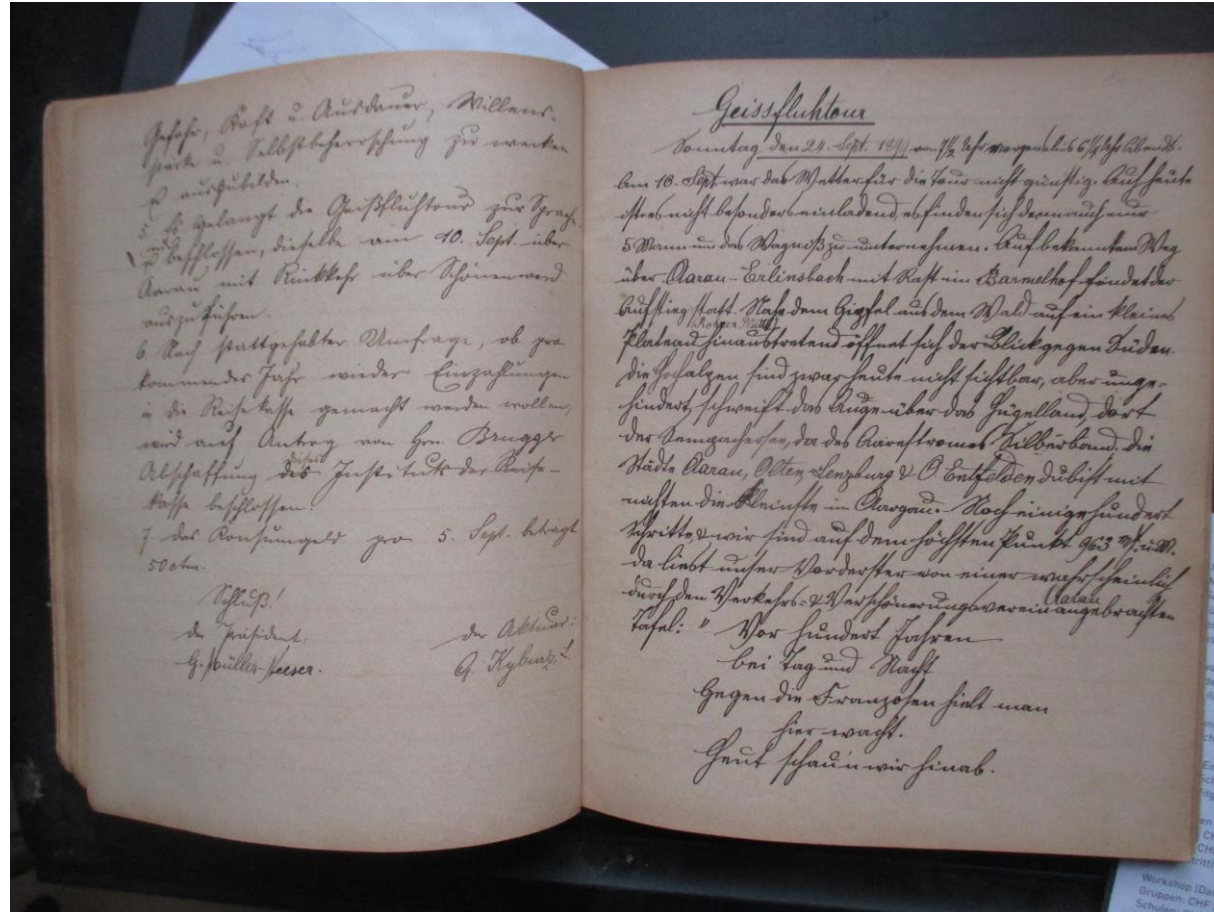 Gefahr, Kraft u. Ausdauer, Willens-
stärke u. Selbstbeherrschung zu wecken
u auszubilden.
5. Es gelangt die Geißfluhtour zur Sprache
u beschlossen, dieselbe am 10. Sept. über
Aarau mit Rückkehr über Schönenwerd
auszuführen.
6. Nach stattgehabter Umfrage, ob pro
kommendes Jahr wieder Einzahlungen
in die Reisekasse gemacht werden wollen,
wird auf Antrag von Hrn. Brugger
Abschaffung dieses Instituts der Reise-
kasse beschlossen.
7. das Konsumgeld pro 5. Sept. beträgt
50 ctm.
Schluß!
Der Präsident:
G. Müller-
der Aktuar:
G. Kyburz, L.
Geissfluhtour
Sonntag den 24. Sept. 1899 von 7 1/2 Uhr morgens bis 6 1/2 Uhr Abends.
Am 10. Sept. war das Wetter für die Tour nicht günstig. Auch heute
ist es nicht besonders einladend, es finden sich denn auch nur
5 Mann um das Wagniß zu unternehmen. Auf bekanntem Weg
über Aarau-Erlinsbach mit Rast im Barmelhof findet der
Aufstieg statt. Nahe dem Gipfel aus dem Wald auf ein kleines
(Rohrer Platte)
Plateau hinaustretend öffnet sich der Blick gegen Süden.
Die Hochalpen sind zwar heute nicht sichtbar, aber unge-
hindert, schweift das Auge über das Hügelland, dort
der Sempachersee, da des Aarestromes Silberband, die
Städte Aarau, Olten, Lenzburg & O. Entfelden du bist mit
nichten die Kleinste im Aargau. Noch einige hundert
Schritte & wir sind auf dem höchsten Punkt 963 m/ ü. M.
da liest unser Vorderster von einer wahrscheinlich
durch den Verkehrs- & Verschönerungsverein Aarau angebrachten
Tafel: " Vor hundert Jahren
bei Tag und Nacht
Gegen die Franzosen hielt man
hier wacht.
Heut schau'n wir hinab.
Workshop
Gruppen: CHF
Schulen: